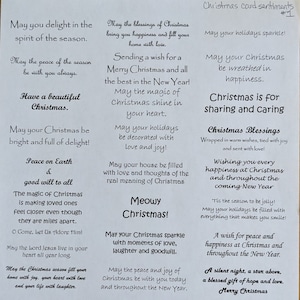 Christmas card sentiments
#1
May you delight in the
spirit of the season.
May the peace of the season
be with you always.
Have a beautiful
Christmas.
May your Christmas be
bright and full of delight!
Peace on Earth
&
good will to all
The magic of Christmas
is making loved ones
feel closer even though
they are miles apart.
O Come, Let Us Adore Him!
May the Lord Jesus live in your
heart all year long.
May the Christmas season fill your
home with joy, your heart with love
and your life with laughter.
May the blessings of Christmas
bring you happiness and fill your
home with love.
Sending a wish for a
Merry Christmas and all
the best in the New Year!
May the magic of
Christmas shine in
your heart.
May your holidays
be decorated with
love and joy!
May your house be filled
with love and thoughts of the
real meaning of Christmas
Meowy
Christmas!
May your Christmas sparkle
with moments of love,
laughter and goodwill.
May the peace and joy of
Christmas be with you today
and throughout the New Year.
May your holidays sparkle!
May your Christmas
be wreathed in
happiness.
Christmas is for
sharing and caring
Christmas Blessings
Wrapped in warm wishes, tied with joy
and sent with love!
Wishing you every
happiness at Christmas
and throughout the
coming New Year
'Tis the season to be jolly!
May your holidays be filled with
everything that makes you smile!
A wish for peace and
happiness at Christmas and
throughout the New Year.
A silent night, a star above,
a blessed gift of hope and love.
Merry Christmas